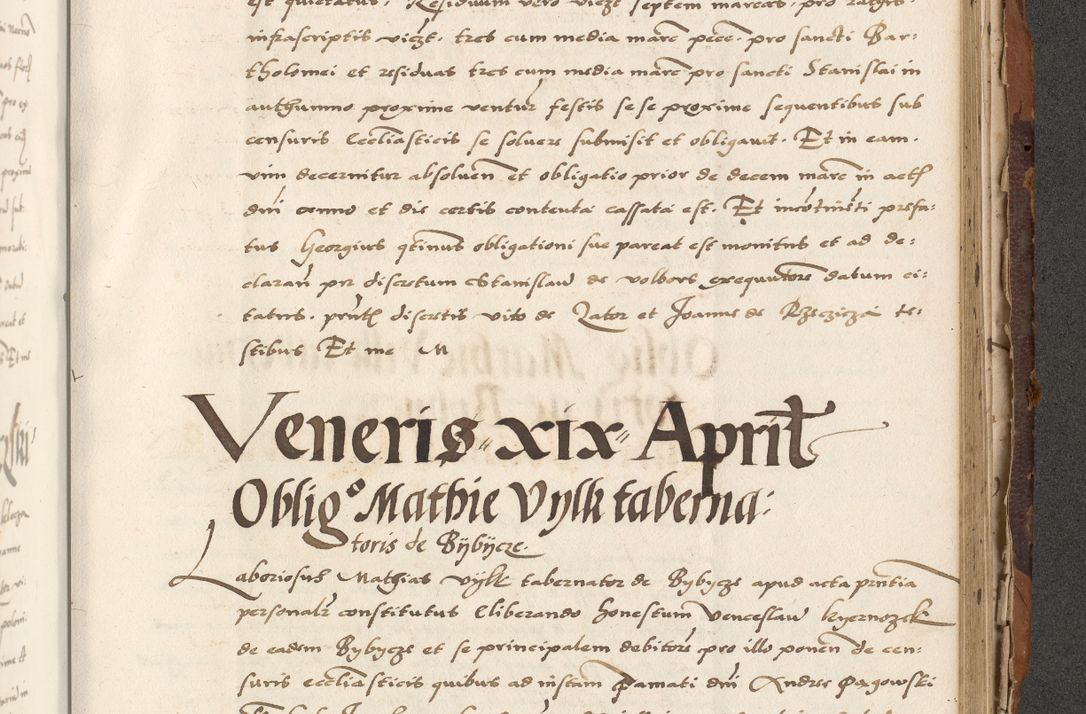 est quietatus. Residuum vero vidzt septem marcas. pro ratis.
infrascriptis vidzt. tres cum media marc pecc. pro sancti Bar-
tholomei et residuas tres cum media marc pro sancti Stanislai in
authumno proxime ventur festis se se proxime sequentibus sub
censuris Eccliasticis se soluere submisit et obligavit. Et in eam.
vim decernitur absoluen et obligatio prior de decem marc in act
dni anno et die certis contenta cassata est. Et incotineti prefa:
tus Georgius qtinus obligationi sue pareat est monitus et ad de:
claran per discretum Stanislau de volbors exequutore datum ci:
tatus. prntl discretis vito de Zator et Joanne de Rzeczicza te-
stibus Et me M
Veneris xix April
Oblig⁰ Mathie Vylk taberna:
toris de Bÿbÿcze.
Laboriosus Mathias vÿlk tabernator de Bybycze apud acta prntia
personalr constitutus Eliberando honestum venceslau kyernozek
de eadem Bybycze et se principalem debitore pro illo ponen de cen:
suris eccliasticis quibus ad instam famati dni Andree Pargowski